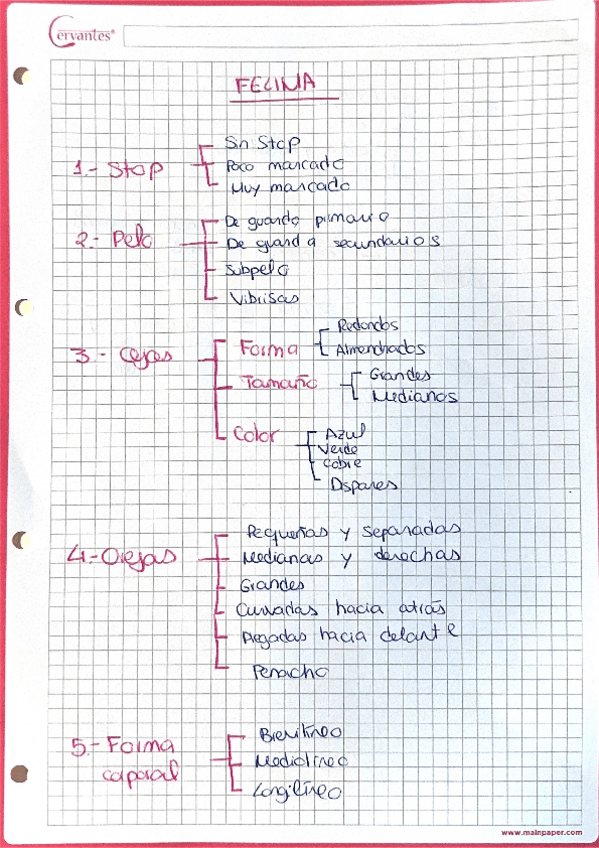 Cervantes®
FELINA
1.- Stop
Sin Stop
Poco marcado
Muy marcado
2.- Pelo
De guarda primario
De guarda secundarios
Subpelo
Vibrisas
3.- Ojos
Forma
Redondos
Almendrados
Tamaño
Grandes
Medianos
Color
Azul
Verde
Cobre
Dispares
4.- Orejas
Pequeñas y separadas
Medianas y derechas
Grandes
Curvadas hacia atrás
Plegadas hacia delante
Penacho
5.- Forma
corporal
Brevilíneo
Mediolíneo
Longilíneo
www.mainpaper.com